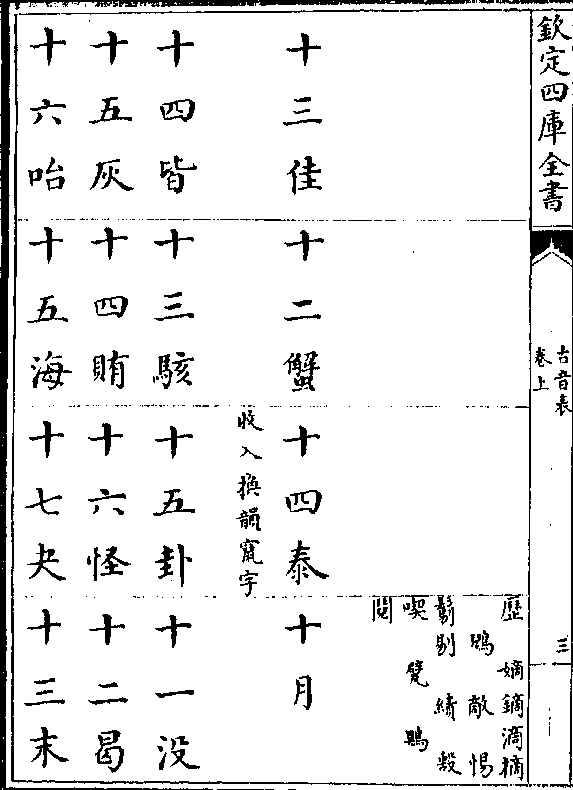 欽定四庫全書
古音表
卷上
三
歷 嫡鏑滴樀
鷁 敵 惕
鬄剔 績 毄
喫 覓 鶪
鬩
十三佳 十二蟹 十四泰 十月
收入換韻竄字
十四皆 十三駭 十五卦 十一没
十五灰 十四賄 十六怪 十二曷
十六咍 十五海 十七夬 十三末